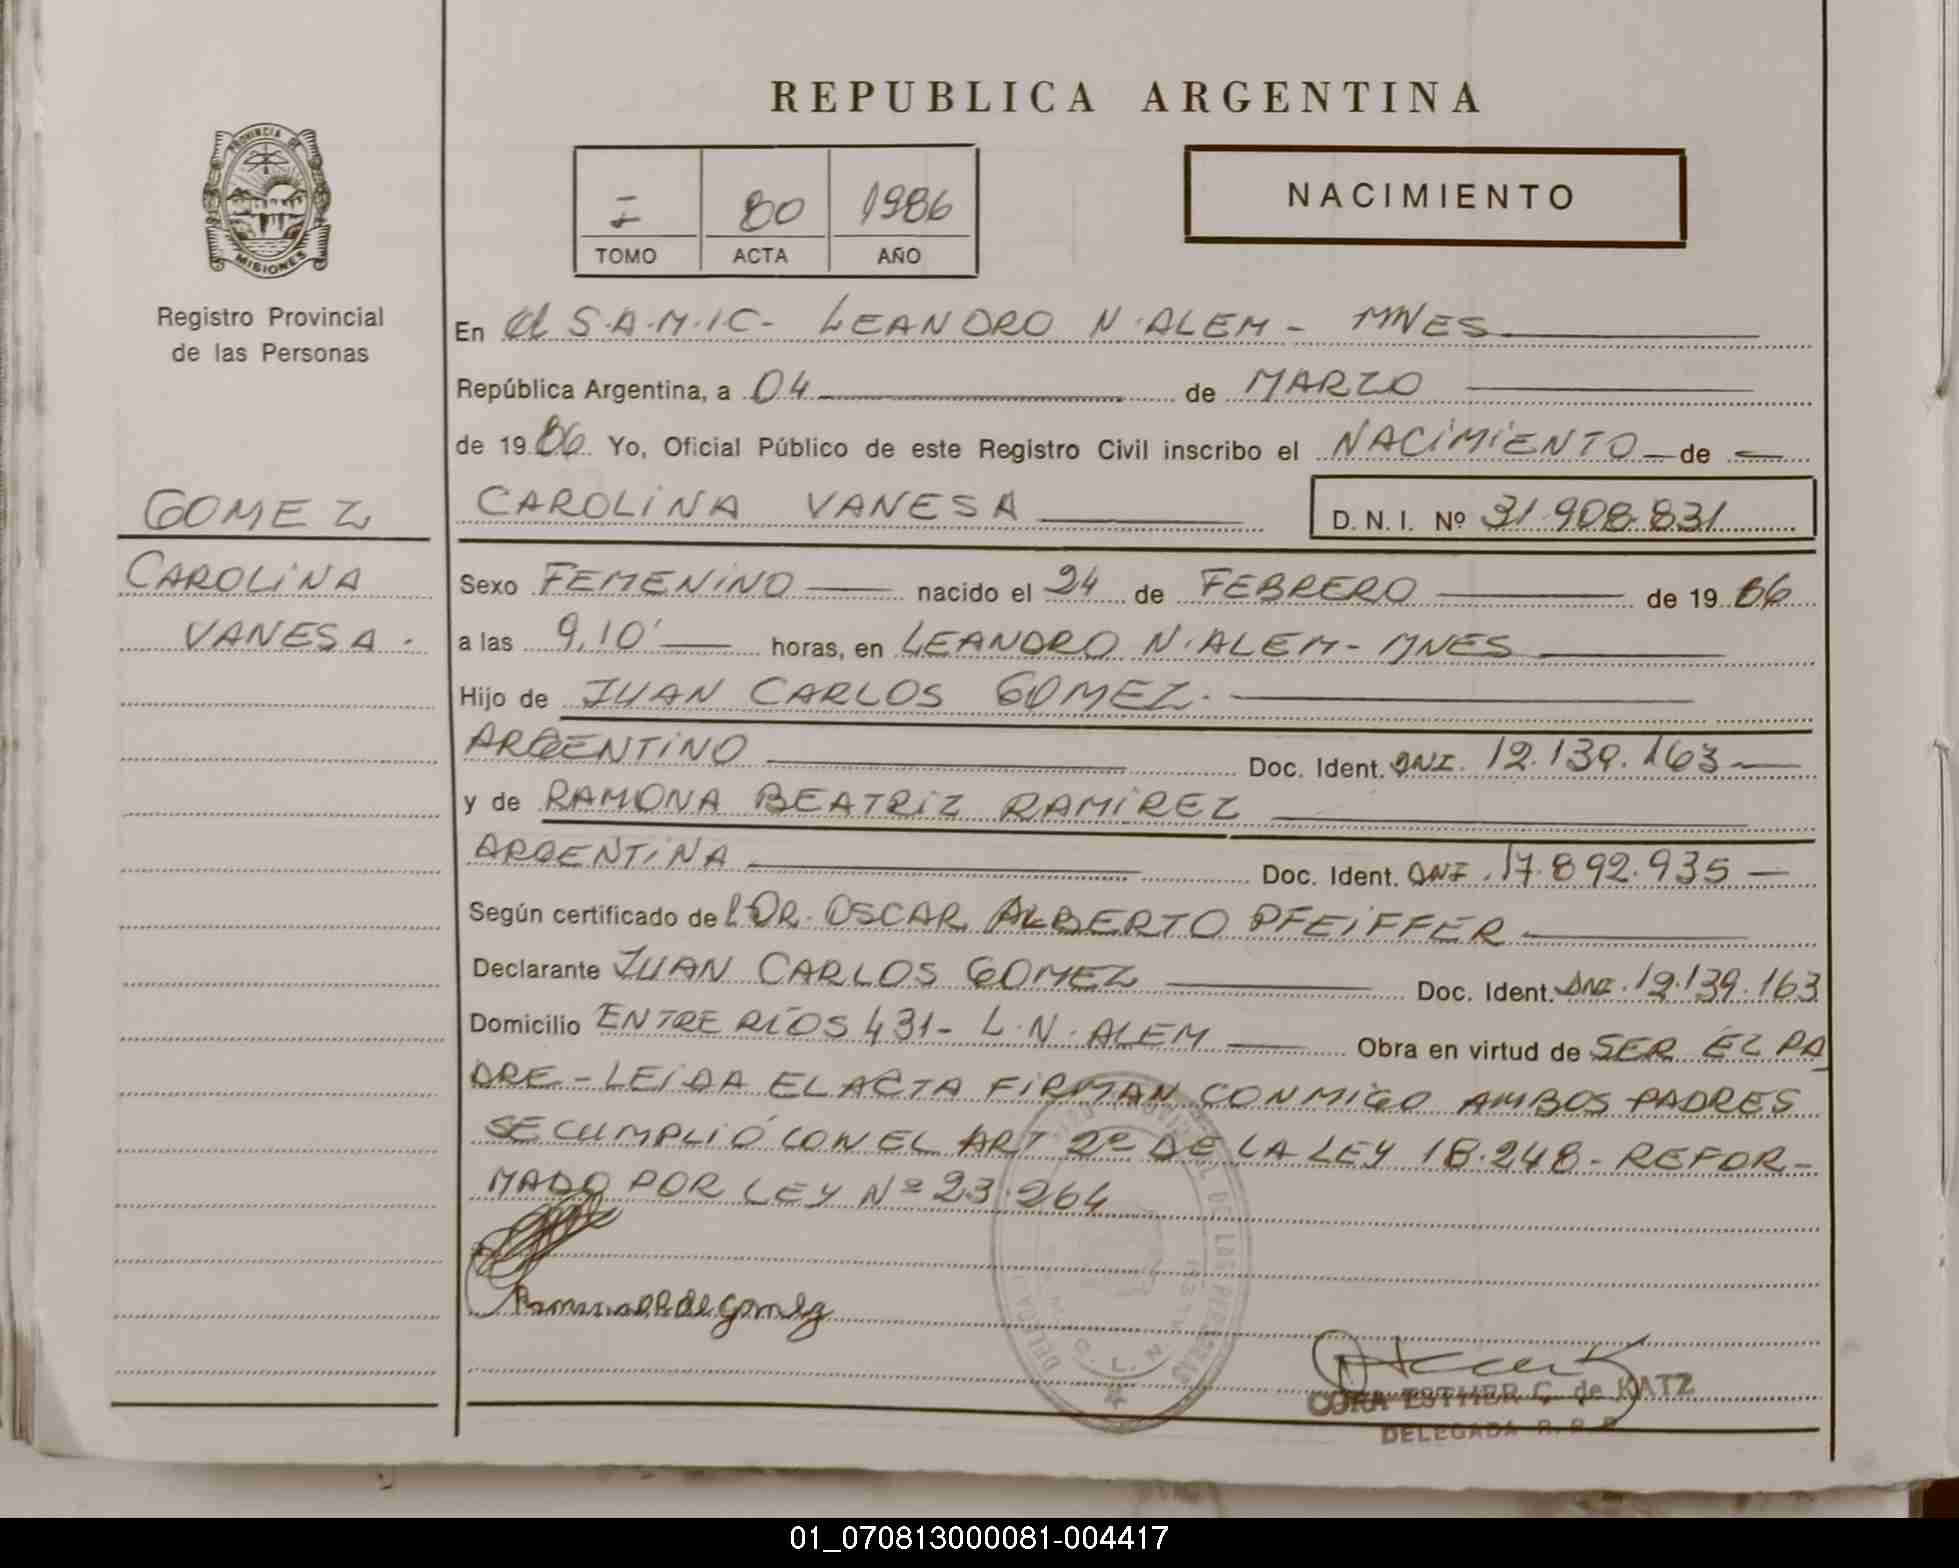 REPUBLICA ARGENTINA
PROVINCIA DE
MISIONES
Registro Provincial
de las Personas
I 80 1986
TOMO ACTA AÑO
NACIMIENTO
En el S.A.M.I.C- LEANDRO N. ALEM - MNES
República Argentina, a 04 de MARZO
de 1986. Yo, Oficial Público de este Registro Civil inscribo el NACIMIENTO de
GOMEZ
CAROLINA VANESA
D.N.I. Nº 31.908.831
CAROLINA
VANESA.
Sexo FEMENINO nacido el 24 de FEBRERO de 1986
a las 9,10' horas, en LEANDRO N. ALEM - MNES
Hijo de JUAN CARLOS GOMEZ.
ARGENTINO Doc. Ident. DNI. 12.139.163
y de RAMONA BEATRIZ RAMIREZ
ARGENTINA Doc. Ident. DNI. 17.892.935
Según certificado del DR. OSCAR ALBERTO PFEIFFER
Declarante JUAN CARLOS GOMEZ Doc. Ident. DNI. 12.139.163
Domicilio ENTRE RÍOS 431- L.N. ALEM Obra en virtud de SER EL PA
DRE - LEIDA EL ACTA FIRMAN CONMIGO AMBOS PADRES
SE CUMPLIÓ CON EL ART 2º DE LA LEY 18.248 - REFOR-
MADO POR LEY Nº 23.264
de Gomez
DE LAS PERSONAS
L. N.
CORA ESTHER C. de KATZ
DELEGADA R. P. P.
01_070813000081-004417